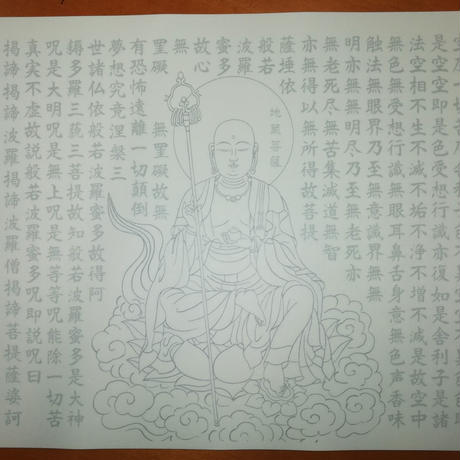 是空空即是色受想行識亦復如是舍利子是諸
法空相不生不滅不垢不浄不増不減是故空中
無色無受想行識無眼耳鼻舌身意無色声香味
触法無眼界乃至無意識界無無
明亦無無明尽乃至無老死亦
無老死尽無苦集滅道無智
亦無得以無所得故菩提
薩埵依
般若
波羅
蜜多
故心
無
罣礙無罣礙故無
有恐怖遠離一切顛倒
夢想究竟涅槃三
世諸仏依般若波羅蜜多故得阿
耨多羅三藐三菩提故知般若波羅蜜多是大神
呪是大明呪是無上呪是無等等呪能除一切苦
真実不虚故説般若波羅蜜多呪即説呪曰
揭諦揭諦波羅揭諦波羅僧揭諦菩提薩婆訶
地蔵菩薩